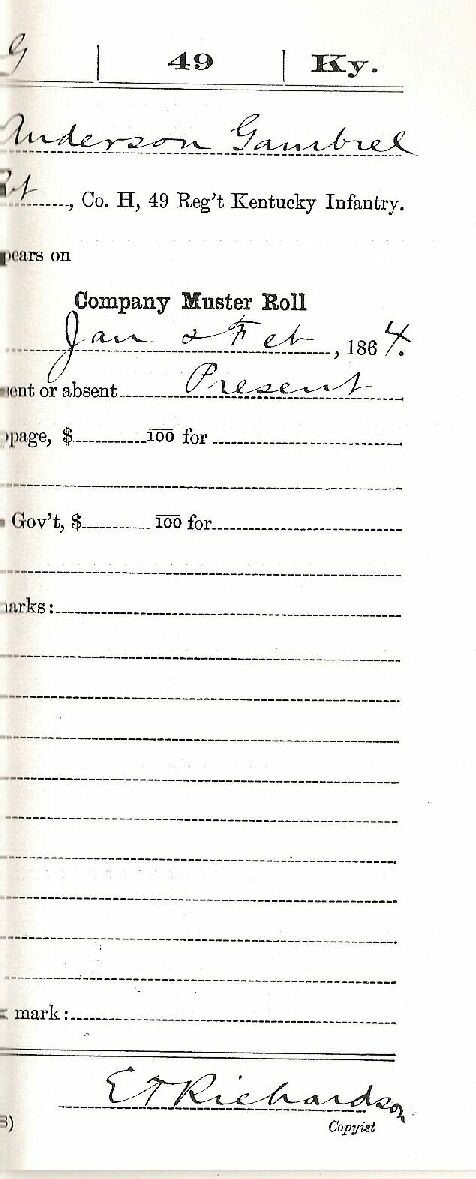 G | 49 | Ky.
Anderson Gambrel
, Co. H, 49 Reg't Kentucky Infantry.
pears on
Company Muster Roll
Jan & Feb, 1864.
ent or absent Present
ppage, $ 100 for
Gov't, $ 100 for
arks:
k mark:
E T Richardson
Copyist